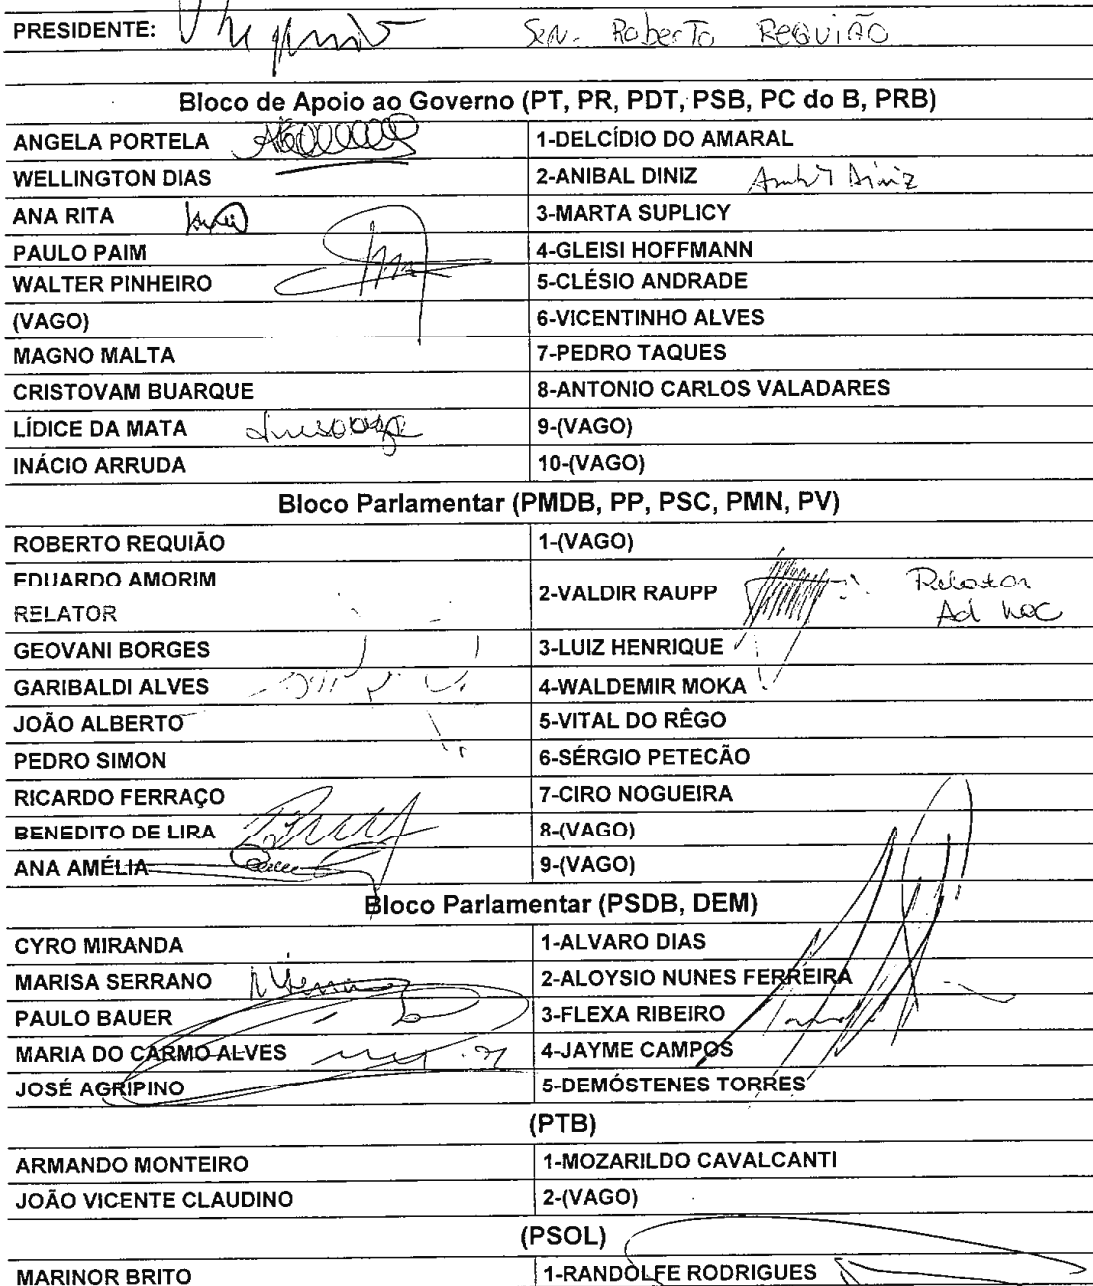 PRESIDENTE: Sen. Roberto Requião
Bloco de Apoio ao Governo (PT, PR, PDT, PSB, PC do B, PRB)
ANGELA PORTELA 1-DELCÍDIO DO AMARAL
WELLINGTON DIAS 2-ANIBAL DINIZ Anibal Diniz
ANA RITA 3-MARTA SUPLICY
PAULO PAIM 4-GLEISI HOFFMANN
WALTER PINHEIRO 5-CLÉSIO ANDRADE
(VAGO) 6-VICENTINHO ALVES
MAGNO MALTA 7-PEDRO TAQUES
CRISTOVAM BUARQUE 8-ANTONIO CARLOS VALADARES
LÍDICE DA MATA 9-(VAGO)
INÁCIO ARRUDA 10-(VAGO)
Bloco Parlamentar (PMDB, PP, PSC, PMN, PV)
ROBERTO REQUIÃO 1-(VAGO)
EDUARDO AMORIM
RELATOR 2-VALDIR RAUPP Relator
Ad hoc
GEOVANI BORGES 3-LUIZ HENRIQUE
GARIBALDI ALVES 4-WALDEMIR MOKA
JOÃO ALBERTO 5-VITAL DO RÊGO
PEDRO SIMON 6-SÉRGIO PETECÃO
RICARDO FERRAÇO 7-CIRO NOGUEIRA
BENEDITO DE LIRA 8-(VAGO)
ANA AMÉLIA 9-(VAGO)
Bloco Parlamentar (PSDB, DEM)
CYRO MIRANDA 1-ALVARO DIAS
MARISA SERRANO 2-ALOYSIO NUNES FERREIRA
PAULO BAUER 3-FLEXA RIBEIRO
MARIA DO CARMO ALVES 4-JAYME CAMPOS
JOSÉ AGRIPINO 5-DEMÓSTENES TORRES
(PTB)
ARMANDO MONTEIRO 1-MOZARILDO CAVALCANTI
JOÃO VICENTE CLAUDINO 2-(VAGO)
(PSOL)
MARINOR BRITO 1-RANDOLFE RODRIGUES